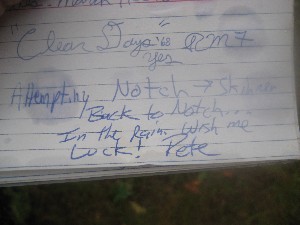 "Clear Days"
yes
Attempting Notch →
Back to Notch...
In the Rain. Wish me
Luck! Pete